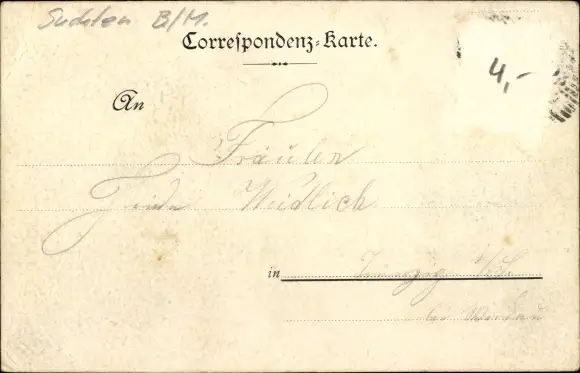 Sudeten B/M.
Correspondenz-Karte.
4,-
An
Fräulein
Weidlich
in
bei